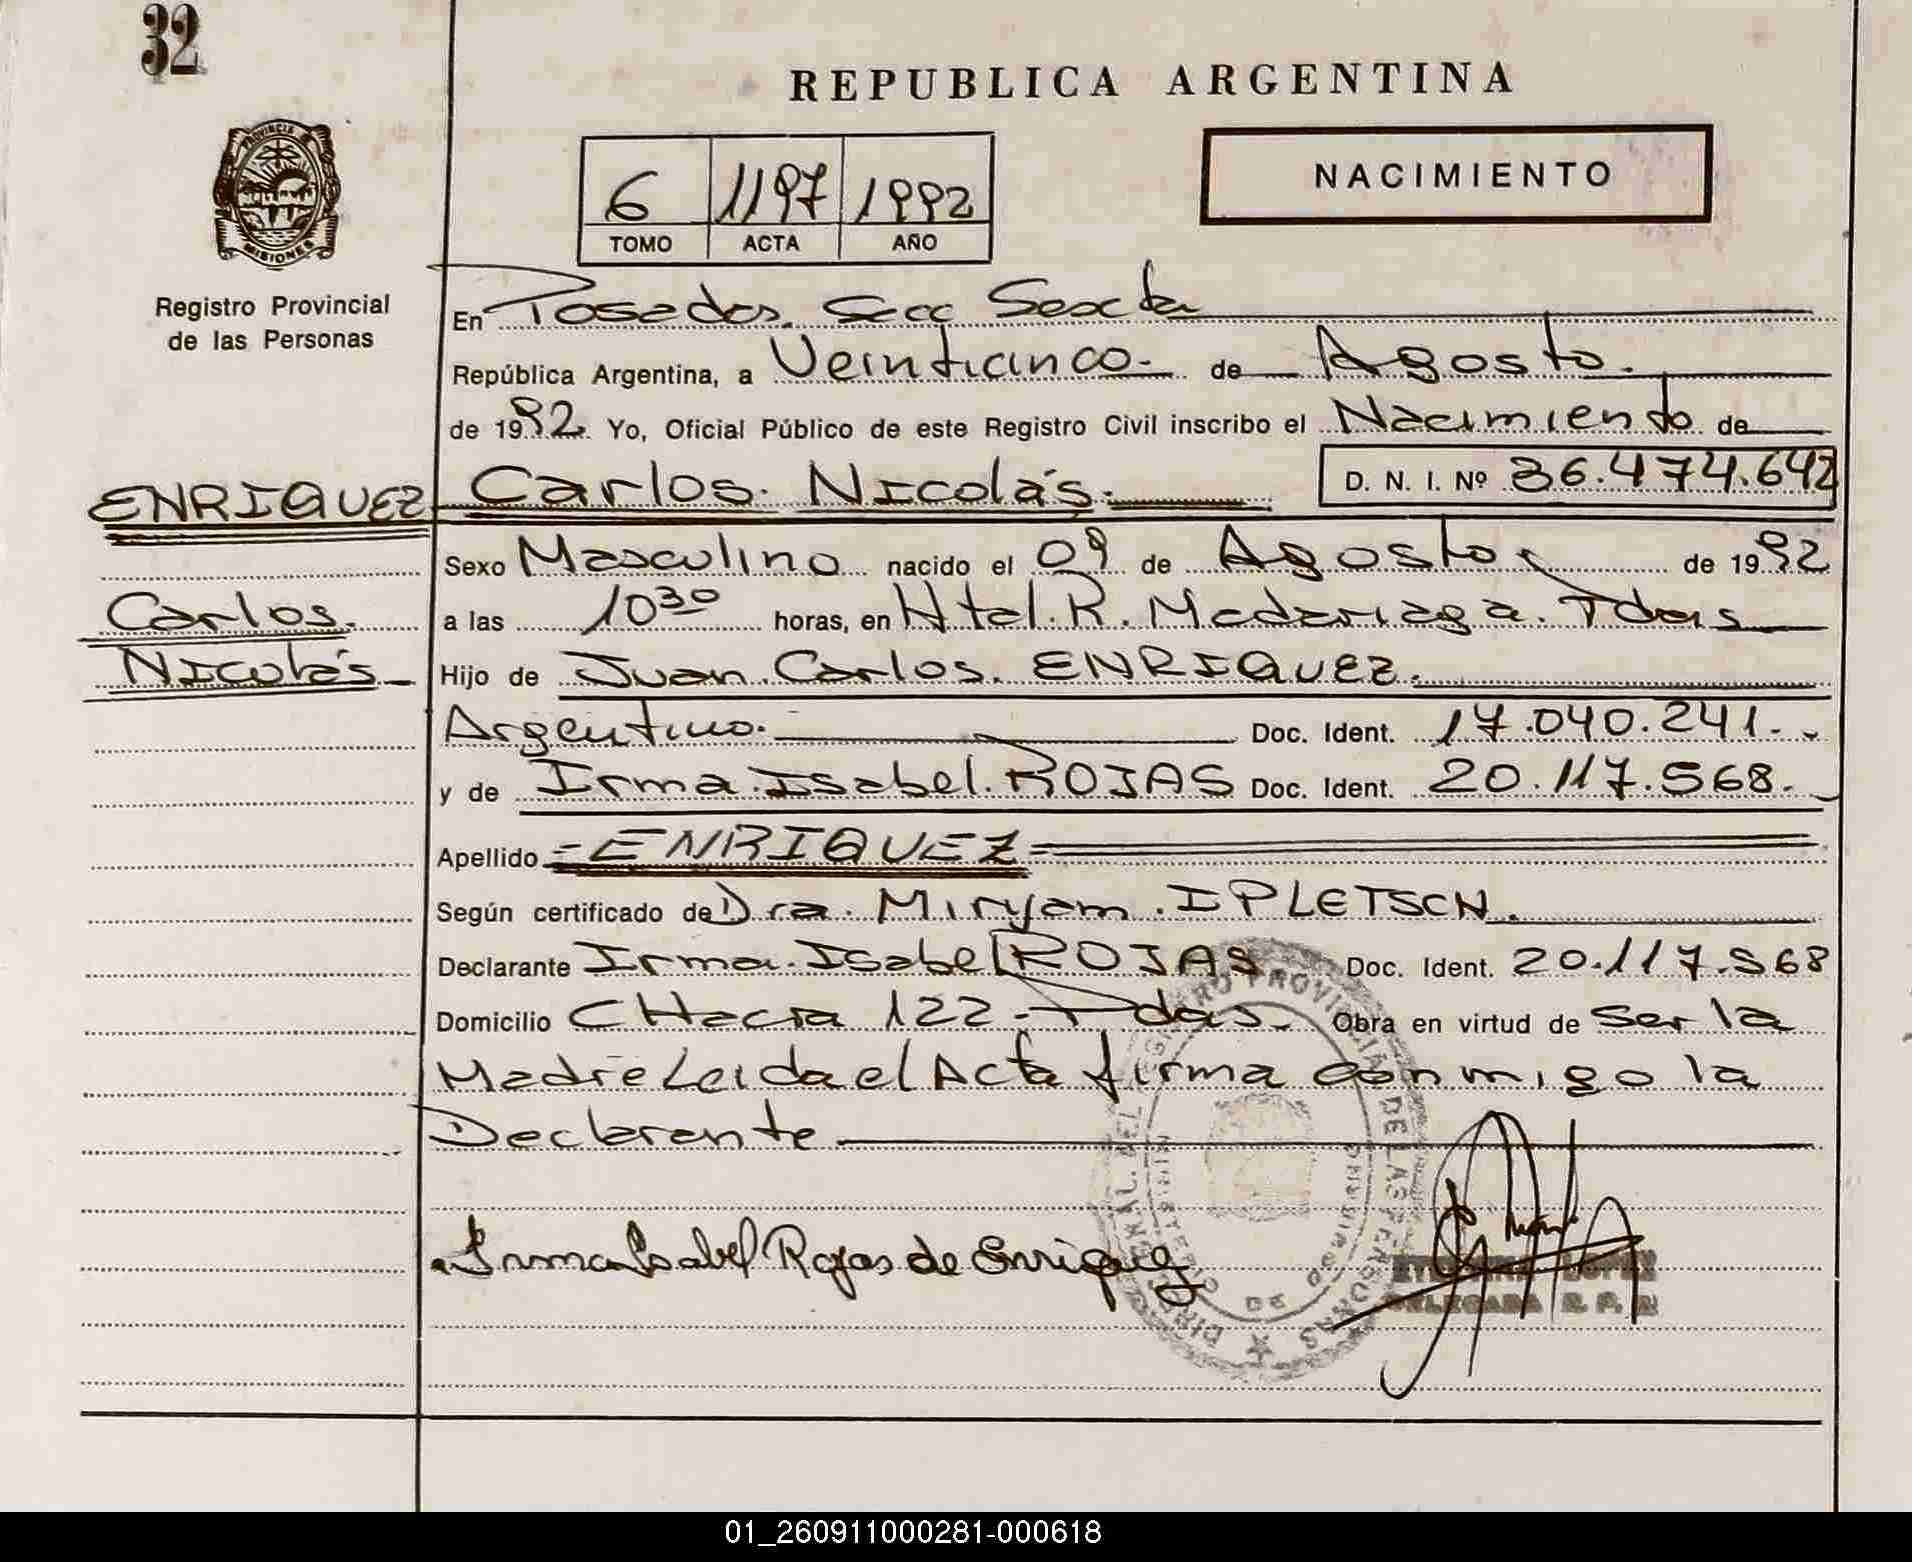 32
REPUBLICA ARGENTINA
PROVINCIA DE MISIONES
6 1197 1992
TOMO ACTA AÑO
NACIMIENTO
Registro Provincial
de las Personas
En Posadas. Secc Sexta
República Argentina, a Veinticinco.- de Agosto.
de 1992. Yo, Oficial Público de este Registro Civil inscribo el Nacimiento de
ENRIQUEZ Carlos. Nicolás. D. N. I. Nº 36.474.642
Sexo Masculino nacido el 09 de Agosto de 1992
Carlos. a las 10 30 horas, en Htal. R. Madariaga. Pdas
Nicolás Hijo de Juan Carlos. ENRIQUEZ.
Argentino. Doc. Ident. 17.040.241.-
y de Irma. Isabel. ROJAS Doc. Ident. 20.117.568.-
Apellido =ENRIQUEZ=
Según certificado de Dra. Miryam. IPLETSCH.
Declarante Irma. Isabel ROJAS Doc. Ident. 20.117.568
Domicilio CHacra 122 - Pdas. Obra en virtud de Ser la
Madre Leida el Acta firma conmigo la
Declarante
Irma Isabel Rojas de Enriquez
REGISTRO PROVINCIAL DE LAS PERSONAS
MINISTERIO DE GOBIERNO
LOPEZ
DELEGADA R. P. P.
01_260911000281-000618